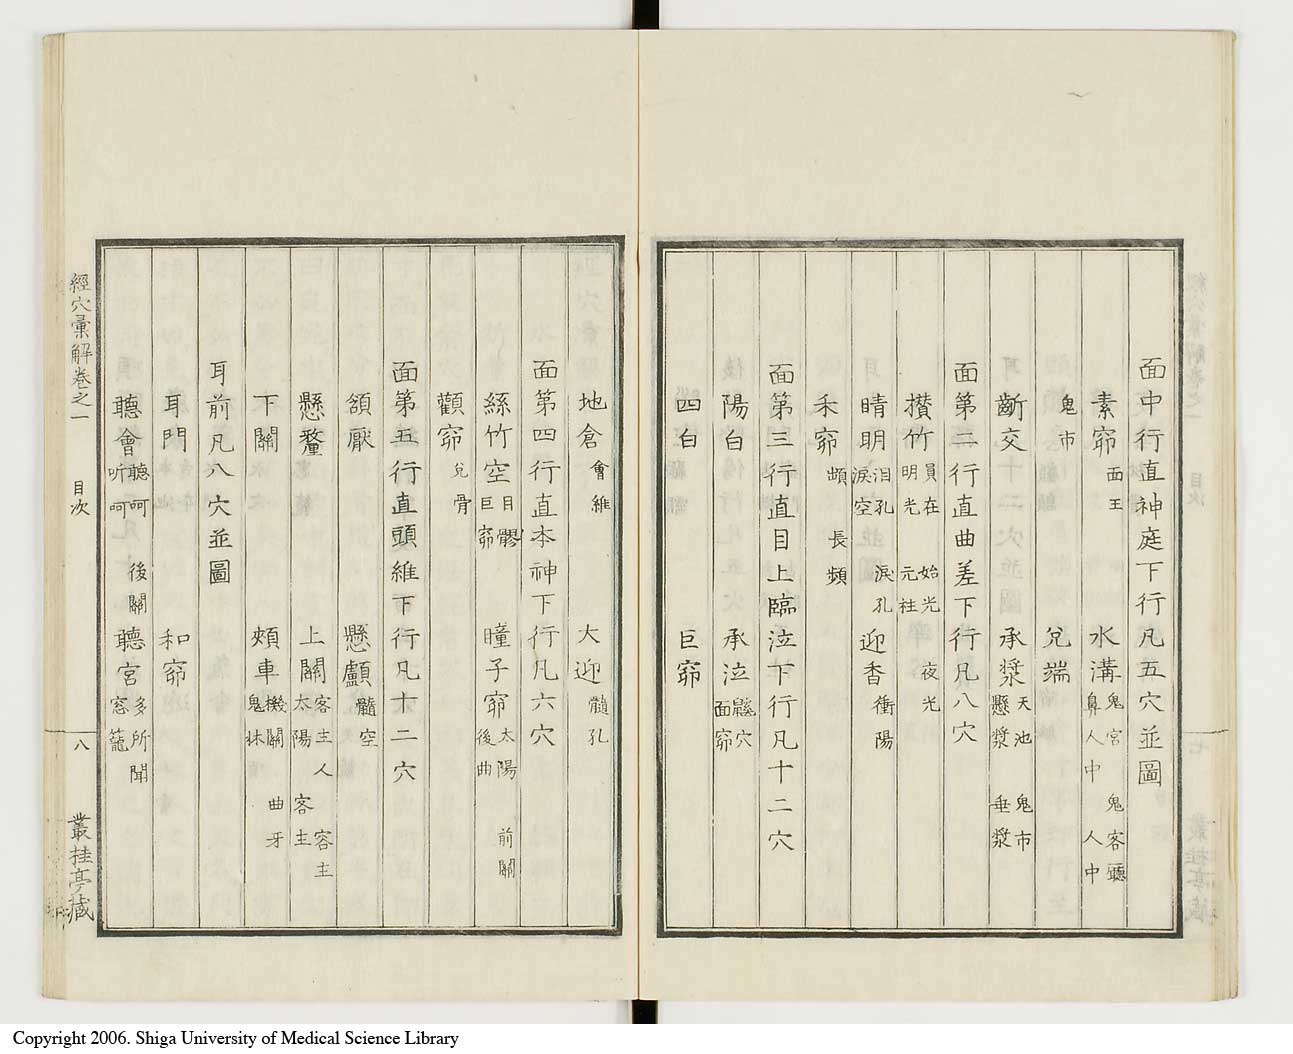 面中行直神庭下行凡五穴並圖
素窌 面王 水溝 鬼宮 鬼客廳 鼻人中 人中
鬼市 兊端
齗交 承漿 天池 鬼市 懸漿 垂漿
面第二行直曲差下行凡八穴
攅竹 員在 始光 夜光 明光 元柱
睛明 泪孔 淚孔 淚空 迎香 衝陽
禾窌 䪼 長頻
面第三行直目上臨泣下行凡十二穴
陽白 承泣 鼷穴 面窌
四白 巨窌
地倉 會維 大迎 髓孔
面第四行直本神下行凡六穴
絲竹空 目髎 巨窌 瞳子窌 太陽 前關 後曲
顴窌 兊骨
面第五行直頭維下行凡十二穴
頷厭 懸顱 髓空
懸釐 上關 客主人 容主 太陽 客主
下關 頰車 機關 曲牙 鬼牀
耳前凡八穴並圖
耳門 和窌
聽會 聽呵 後關 听呵 聽宮 多所聞 窓籠
經穴彙解卷之一 目次 八 叢桂亭藏
Copyright 2006. Shiga University of Medical Science Library